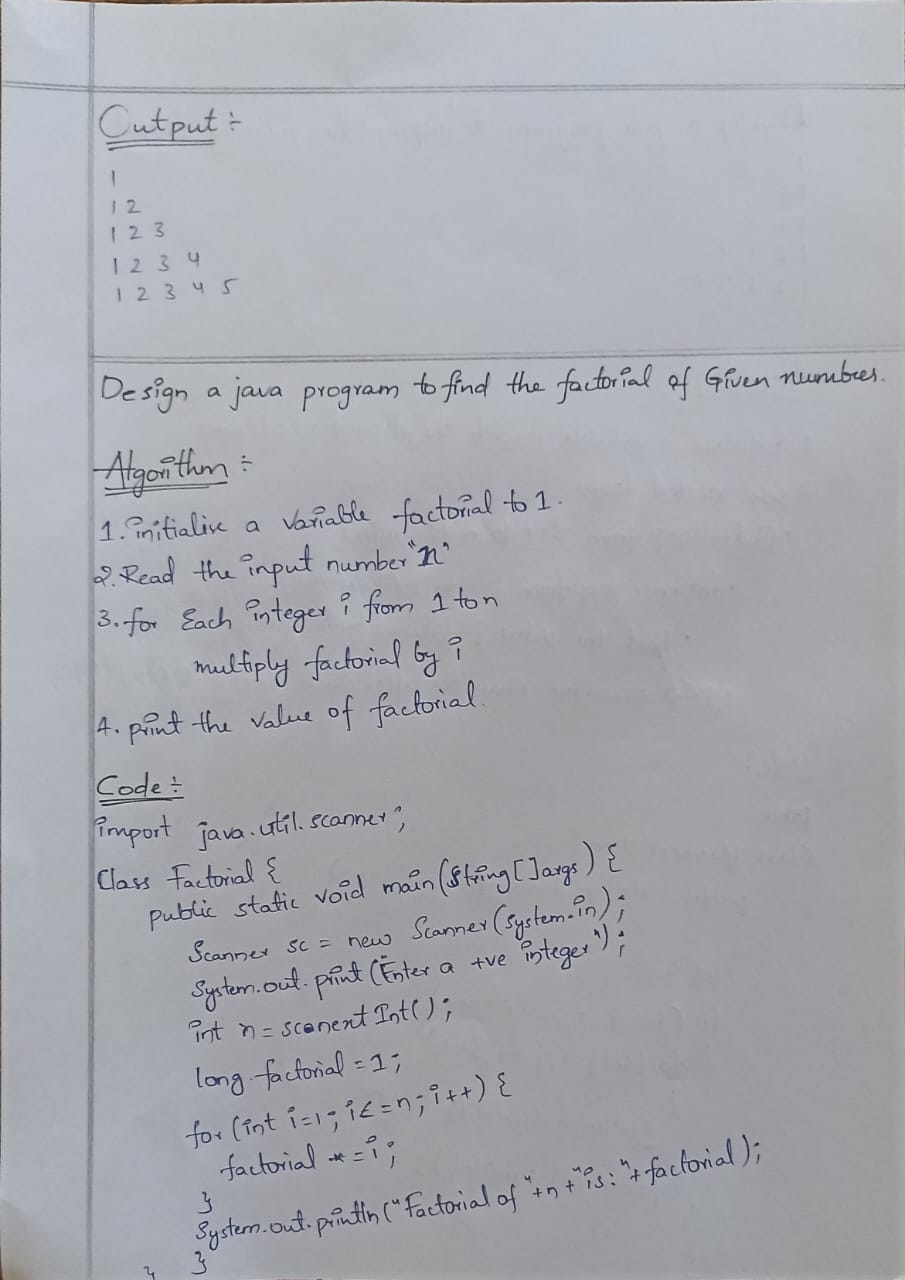 Output :-
1
1 2
1 2 3
1 2 3 4
1 2 3 4 5
Design a java program to find the factorial of Given numbres.
Algorithm :-
1. initialise a variable factorial to 1.
2. Read the input number "n"
3. for Each integer i from 1 to n
multiply factorial by i
4. print the value of factorial.
Code :-
import java.util.scanner;
Class Factorial {
public static void main(String[]args) {
Scanner sc = new Scanner(System.in);
System.out.print("Enter a +ve integer");
int n = scanext Int();
long factorial = 1;
for (int i=1; i<=n; i++) {
factorial *= i;
}
System.out.println("Factorial of "+n+"is:"+factorial);
} }